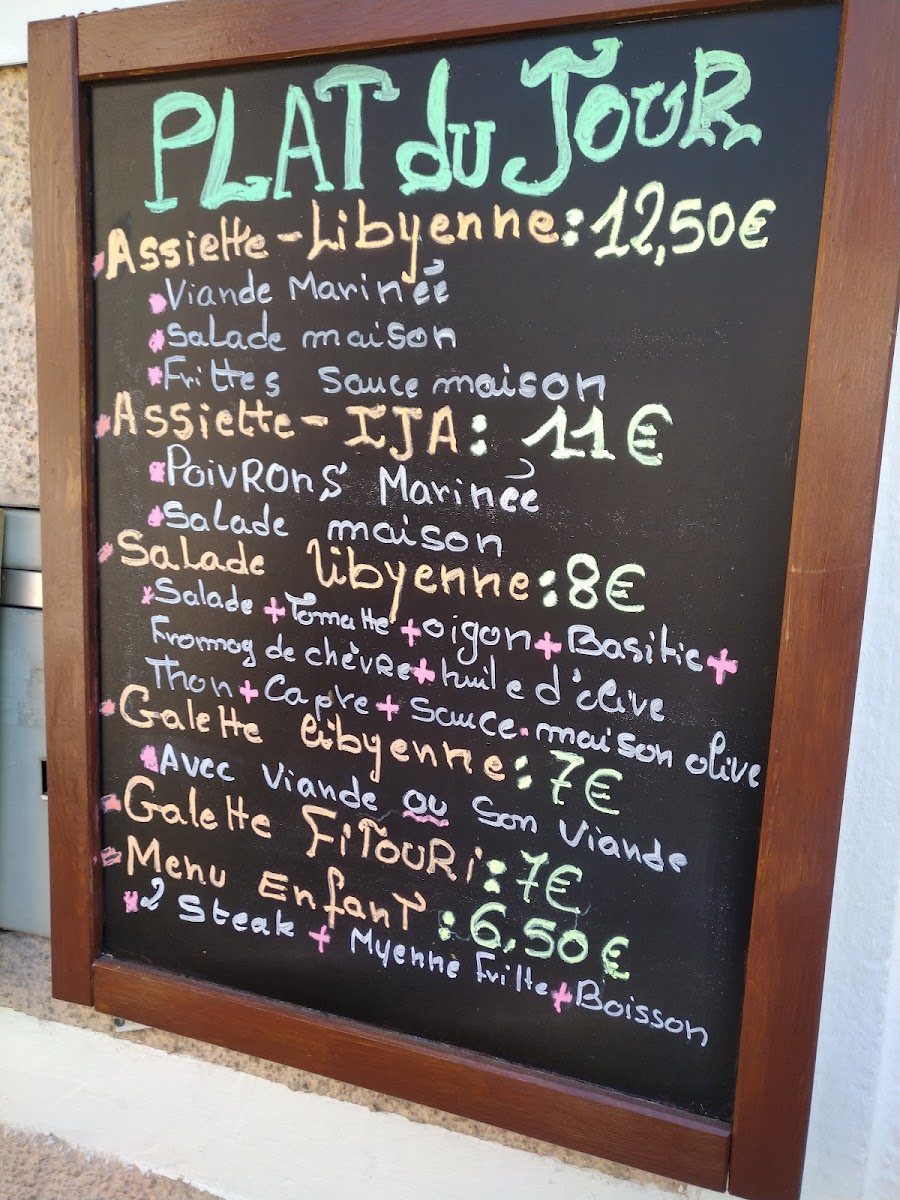 PLAT du JOUR
Assiette-Libyenne: 12,50€
Viande Marinéé
Salade maison
Frittes sauce maison
Assiette-IJA: 11€
POIVRONS Marinéé
Salade maison
Salade libyenne: 8€
Salade + Tomatte + oigon + Basilic +
Fromag de chèvre + huile d'olive
Thon + Capre + Sauce.maison olive
Galette libyenne: 7€
Avec viande ou Son Viande
Galette FiTOURi: 7€
Menu EnfanT: 6,50€
2 Steak + Myenne Fritte + Boisson